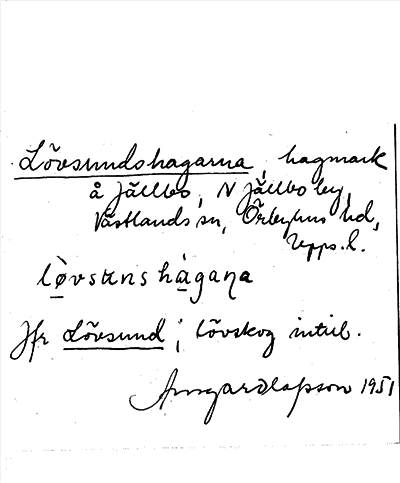 Lövsundshagarna, hagmark
å Jällbo, N Jällbo by,
Västlands sn, Örbyhus hd,
Upps. l.
lø̀vsɯns hàgaṇa
Jfr Lövsund; lövskog intill.
Olafsson 1951